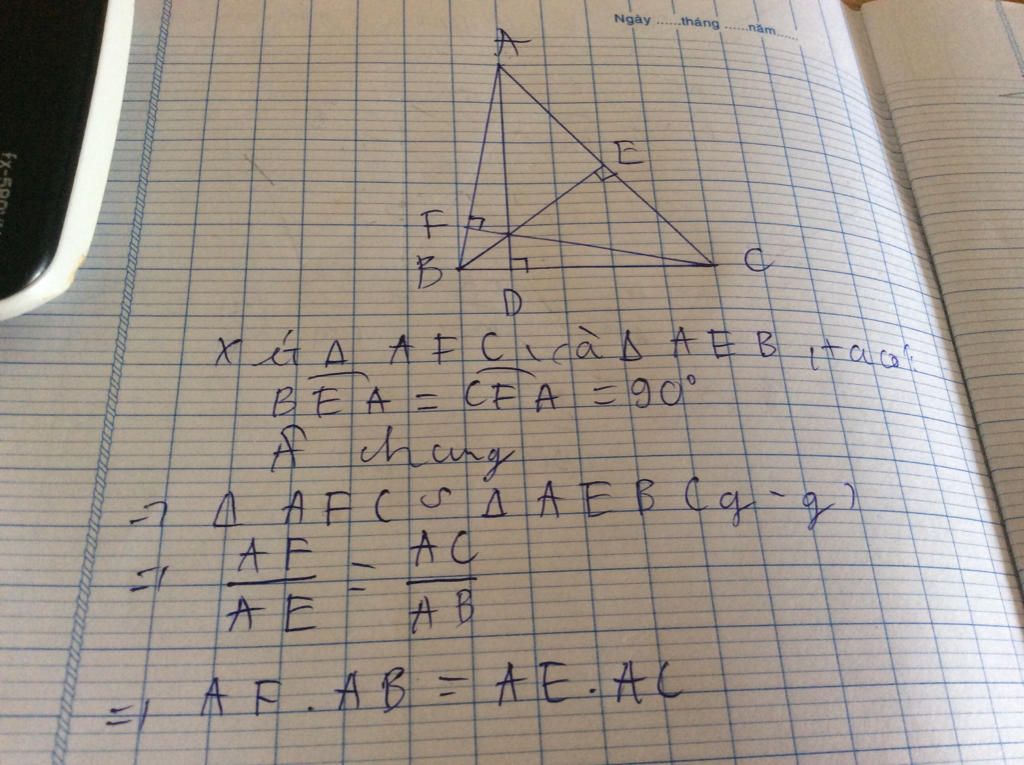 Ngày ......tháng ......năm......
A
E
F
B
C
D
Xét Δ AFC và Δ AEB, ta có:
BEA = CFA = 90°
Â chung
=> Δ AFC ∽ Δ AEB (g-g)
=> AF/AE = AC/AB
=> AF . AB = AE . AC